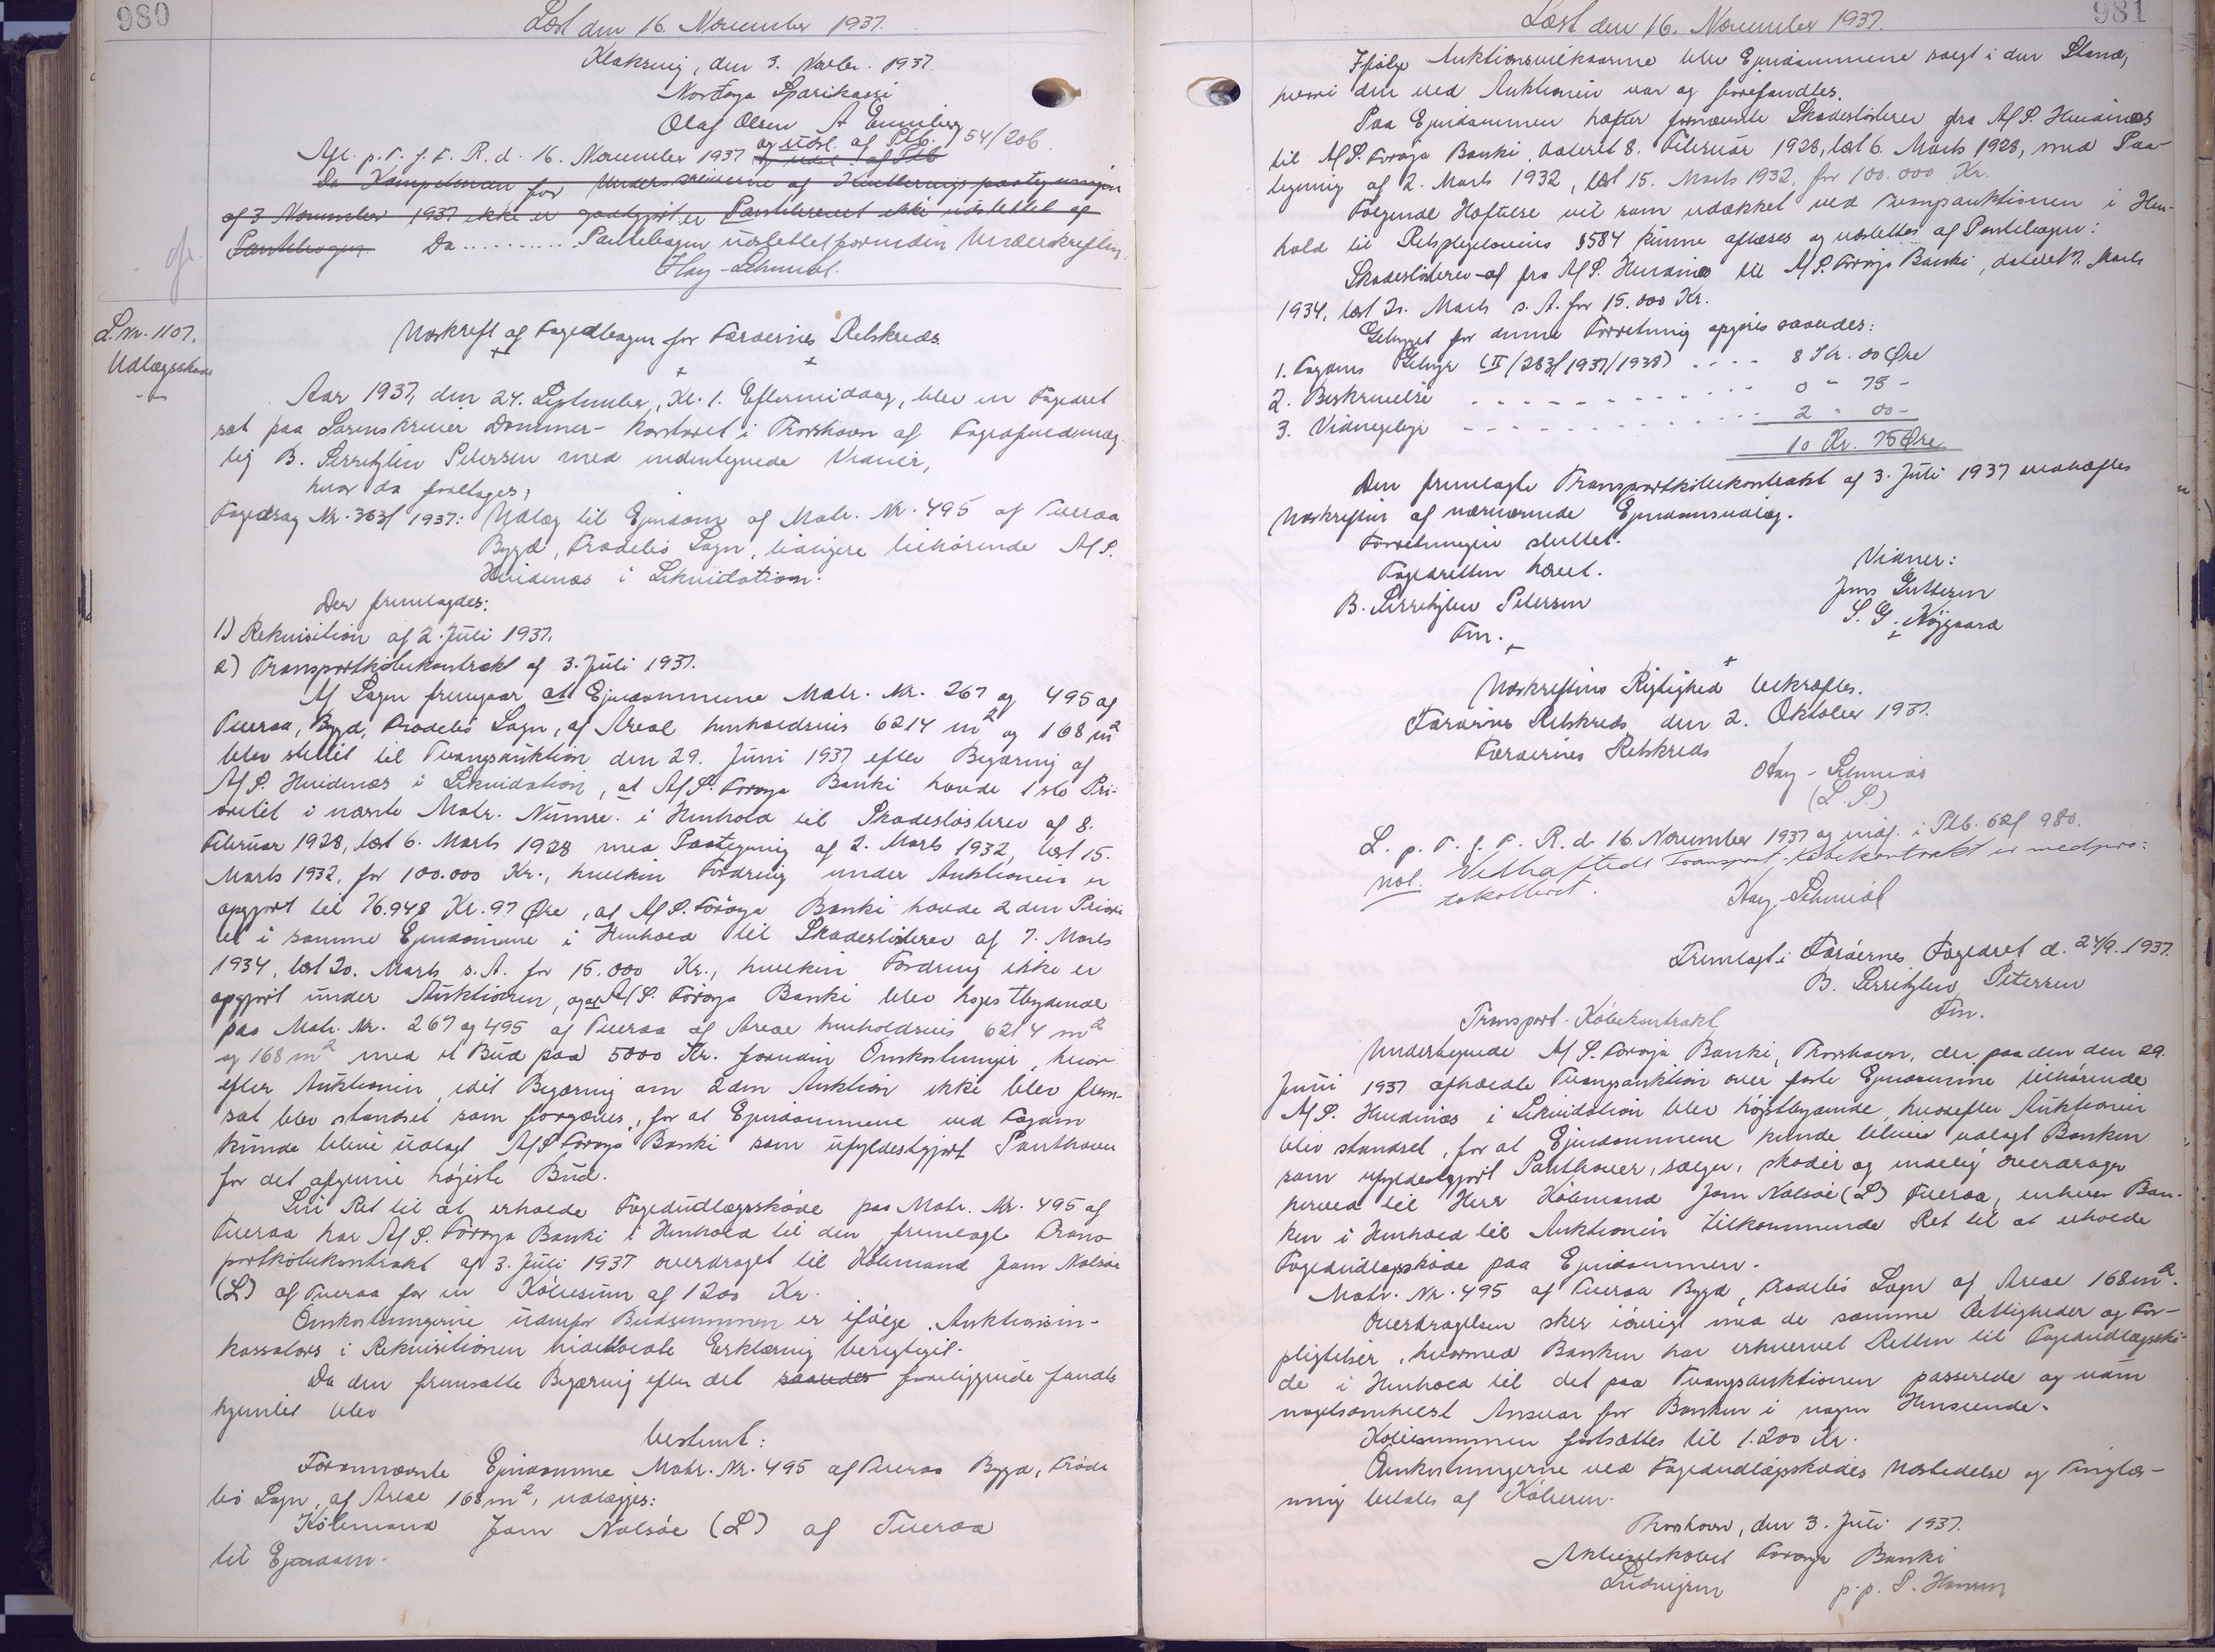 980
Læst den 16. November 1937.
Klaksvig, den 3. Novbr. 1937.
Norðoya Sparikassi
Olaf Olsen
og udsl. af Ptb. 54/206.
Afl. p. T. f. F. R. d. 16. November 1937 og udsl. af Ptb
Da Kompetencen for Underskriverne af Kvitteringspaategningen
af 3 November 1937 ikke er godtgjort er Pantebrevet ikke udslettet af
Pantebogen. Da .......... Pantebogen udslettet foruden Underskriften.
Hay-Schmidt.
L. Nr. 1107.
Udlægsskøde
Udskrift af Fogedbogen for Færøernes Retskreds.
Aar 1937, den 24. September, Kl. 1. Eftermiddag, blev en Fogedret
sat paa Sorenskriver Dommer-kontoret i Thorshavn af Fogedfuldmæg-
tig B. Serritzlew Petersen med undertegnede Vidner,
hvor da foretages:
Fogedsag Nr. 363/1937: Udlæg til Ejendom af Matr. Nr. 495 af Tveraa
Bygd, Frodebø Sogn, tidligere tilhørende A/S.
Hvidenæs i Likvidation.
Der fremlagdes:
1) Rekvisition af 2. Juli 1937.
2) Transportkøbekontrakt af 3. Juli 1937.
Af Sagen fremgaar at Ejendommene Matr. Nr. 267 og 495 af
Tveraa, Bygd, Frodebø Sogn, af Areal henholdsvis 6214 m² og 168 m²
blev stillet til Tvangsauktion den 29. Juni 1937 efter Begæring af
A/S. Hvidenæs i Likvidation, at A/S. Føroya Banki havde 1ste Pri-
oritet i nævnte Matr. Numre. i Henhold til Skadesløsbrev af 8.
Februar 1928, læst 6. Marts 1928 med Paategning af 2. Marts 1932, læst 15.
Marts 1932, for 100.000 Kr., hvilken Fordring under Auktionen er
opgjort til 76.948 Kr. 97 Øre, at A/S. Føroya Banki havde 2den Priori-
tet i samme Ejendomme i Henhold til Skadesløsbrev af 7. Marts
1934, læst 20. Marts s. A. for 15.000 Kr., hvilken Fordring ikke er
opgjort under Auktionen, og at A/S. Føroya Banki blev højstbydende
paa Matr. Nr. 267 og 495 af Tveraa af Areal henholdsvis 6214 m²
og 168 m² med et Bud paa 5000 Kr. foruden Omkostninger, hvor-
efter Auktionen, idet Begæring om 2den Auktion ikke blev frem-
sat blev standset som forgæves, for at Ejendommene ved Fogden
kunde blive udlagt A/S Føroya Banki som ufyldestgjort Panthaver
for det afgivne højeste Bud.
Sin Ret til at erholde Fogedudlægsskøde paa Matr. Nr. 495 af
Tveraa har A/S. Føroya Banki i Henhold til den fremlagte Trans-
portkøbekontrakt af 3. Juli 1937 overdraget til Købmand Joen Nolsøe
(L) af Tveraa for en Købesum af 1200 Kr.
Omkostningerne udenfor Budsummen er ifølge Auktionsin-
kassators i Rekvisitionen indeholdte Erklæring berigtiget.
Da den fremsatte Begæring efter det saaledes foreliggende fandtes
hjemlet blev
bestemt:
Fornævnte Ejendomme Matr. Nr. 495 af Tveraa Bygd, Frode-
bø Sogn, af Areal 168 m², udlægges:
Købmand Joen Nolsøe (L) af Tveraa
til Ejendom.
981
Læst den 16. November 1937.
Ifølge Auktionsvilkaarene blev Ejendommene solgt i den Stand,
hvori den ved Auktionen var og forefandtes.
Paa Ejendommen hæfter fornævnte Skadesløsbrev fra A/S. Hvidenæs
til A/S. Føroya Banki, dateret 8. Februar 1928, læst 6. Marts 1928, med Paa-
tegning af 2. Marts 1932, læst 15. Marts 1932, for 100.000 Kr.
Følgende Hæftelse vil som udækket ved Tvangsauktionen i Hen-
hold til Retsplejelovens §584 kunne aflæses og udslettes af Pantebogen:
Skadesløsbrev af fra A/S. Hvidenæs til A/S. Føroya Banki, dateret 7. Marts
1934, læst 20. Marts s. A. for 15.000 Kr.
Gebyret for denne Forretning opgøres saaledes:
1. Fogdens Gebyr (II/283/1937/1938) .... 8 Kr. 00 Øre
2. Beskrivelse .... 0 " 75 -
3. Vidnegebyr .... 2 " 00 -
10 Kr. 75 Øre
Den fremlagte Transportkøbekontrakt af 3. Juli 1937 vedhæftes
Udskriften af nærværende Ejendomsudlæg.
Forretningen sluttet.
Fogedretten hævet.
Vidner:
B. Serritzlew Petersen
Jens Guttesen
Fm.
S. G. Nygaard
Udskriftens Rigtighed bekræftes.
Færøernes Retskreds den 2. Oktober 1937.
Færøernes Retskreds
Hay-Schmidt
(L.S.)
L. p. T. f. F. R. d. 16. November 1937 og indf. i Ptb. 62/980.
not. Vedhæftede Transport-Købekontrakt er medpro-
tokolleret.
Hay-Schmidt
Fremlagt i Færøernes Fogedret d. 24/9. 1937.
B. Serritzlew Petersen
Fm.
Transport-Købekontrakt
Undertegnede A/S. Føroya Banki, Thorshavn, der paa den den 29.
Juni 1937 afholdte Tvangsauktion over faste Ejendomme tilhørende
A/S. Hvidenæs i Likvidation blev højstbydende, hvorefter Auktionen
blev standset, for at Ejendommene kunde blive udlagt Banken
som ufyldestgjort Panthaver, sælger, skøder og endelig overdrager
herved til Herr Købmand Joen Nolsøe (L) Tveraa, enhver Ban-
ken i Henhold til Auktionen tilkommende Ret til at erholde
Fogedudlægsskøde paa Ejendommen.
Matr. Nr. 495 af Tveraa Bygd, Frodebø Sogn af Areal 168 m².
Overdragelsen sker iøvrigt med de samme Rettigheder og For-
pligtelser, hvormed Banken har erhvervet Retten til Fogedudlægsskø-
de i Henhold til det paa Tvangsauktionen passerede og uden
nogetsomhelst Ansvar for Banken i nogen Henseende.
Købesummen fastsættes til 1.200 Kr.
Omkostningerne ved Fogedudlægsskødes Udstedelse og Tinglæs-
ning betales af Køberen.
Thorshavn, den 3. Juli 1937.
Aktieselskabet Føroya Banki
Ludvigsen p.p. S. Hansen